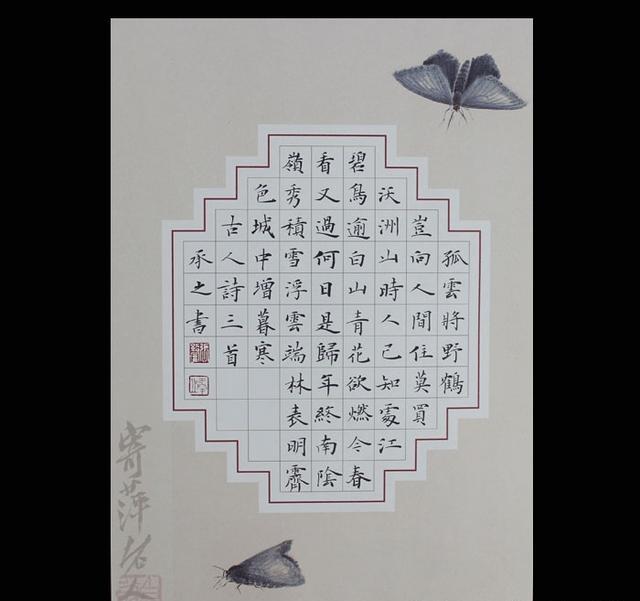 孤雲將野鶴
豈向人間住莫買
沃洲山時人已知處江
碧鳥逾白山青花欲燃今春
看又過何日是歸年終南陰
嶺秀積雪浮雲端林表明霽
色城中增暮寒
古人詩三首
承之書
寄萍老人